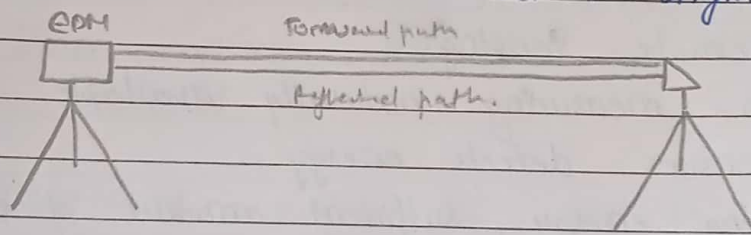 EDM
Forward path
Reflected path.